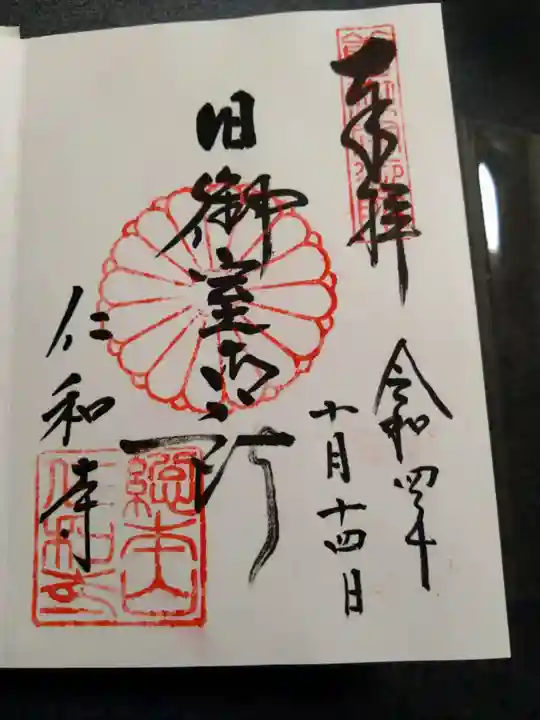 奉拝
令和四年
十月十四日
旧御室御所
仁和寺
総本山
仁和寺